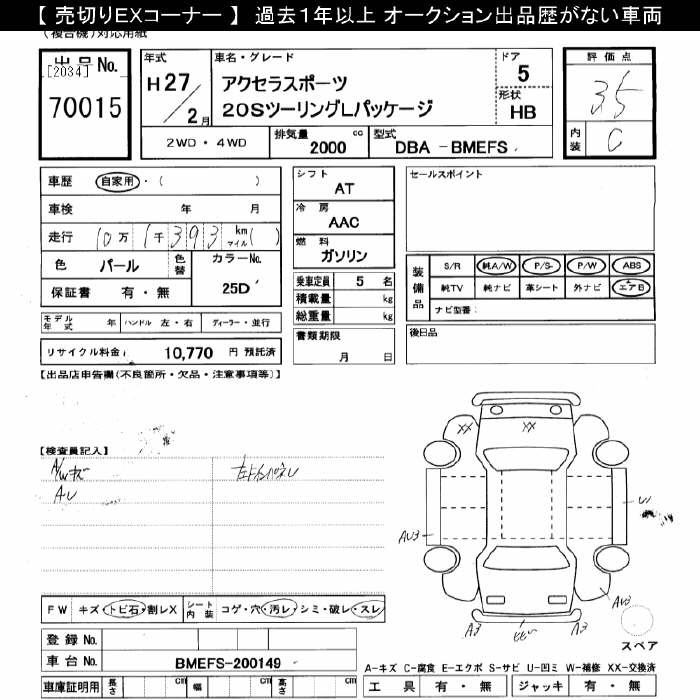 【 売切りEXコーナー 】 過去1年以上 オークション出品歴がない車両
(複合機)対応用紙
出品No.
[2034]
70015
年式
H27/2月
車名・グレード
アクセラスポーツ
20SツーリングLパッケージ
ドア
5
形状
HB
2WD・4WD
排気量 2000 cc
型式 DBA -BMEFS
評価点
3.5
内装 C
車歴 自家用・( )
車検 年 月
走行 10万 1千 393 km マイル( )
色 パール 色替 カラーNo. 25D
保証書 有・無
モデル年式 年 ハンドル 左・右 ディーラー・並行
リサイクル料金: 10,770 円 預託済
シフト
AT
冷房
AAC
燃料
ガソリン
乗車定員 5 名
積載量 kg
総重量 kg
書類期限
月 日
セールスポイント
装備品
S/R 純A/W P/S P/W ABS
純TV 純ナビ 革シート 外ナビ エアB
ナビ型番:
後日品
【出品店申告欄(不良箇所・欠品・注意事項等)】
【検査員記入】
A/Wキズ
AU
XX XX
U1
AU3
AU3
A3
A3
スペア
FW キズ・トビ石・割レX シート内装 コゲ・穴・汚レ・シミ・破レ・スレ
登録No.
車台No. BMEFS-200149
車庫証明用 長さ cm 幅 cm 高さ cm
A-キズ C-腐食 E-エクボ S-サビ U-凹ミ W-補修 XX-交換済
工具 有・無 ジャッキ 有・無